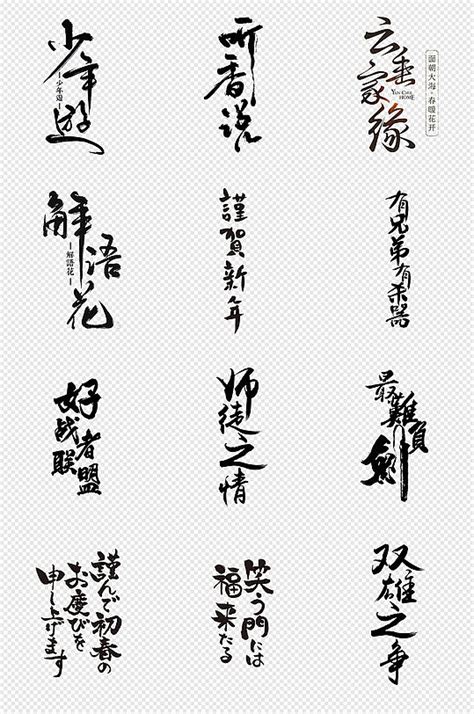 少年遊
少年遊
听香说
云垂家缘
YUN CHUI HOME
面朝大海·春暖花开
解语花
解語花
謹賀新年
有兄弟有杀器
好战者
联盟
师徒之情
最難負
劍
謹んで初春の
お慶びを
申し上げます
笑う門には
福来たる
双雄之争